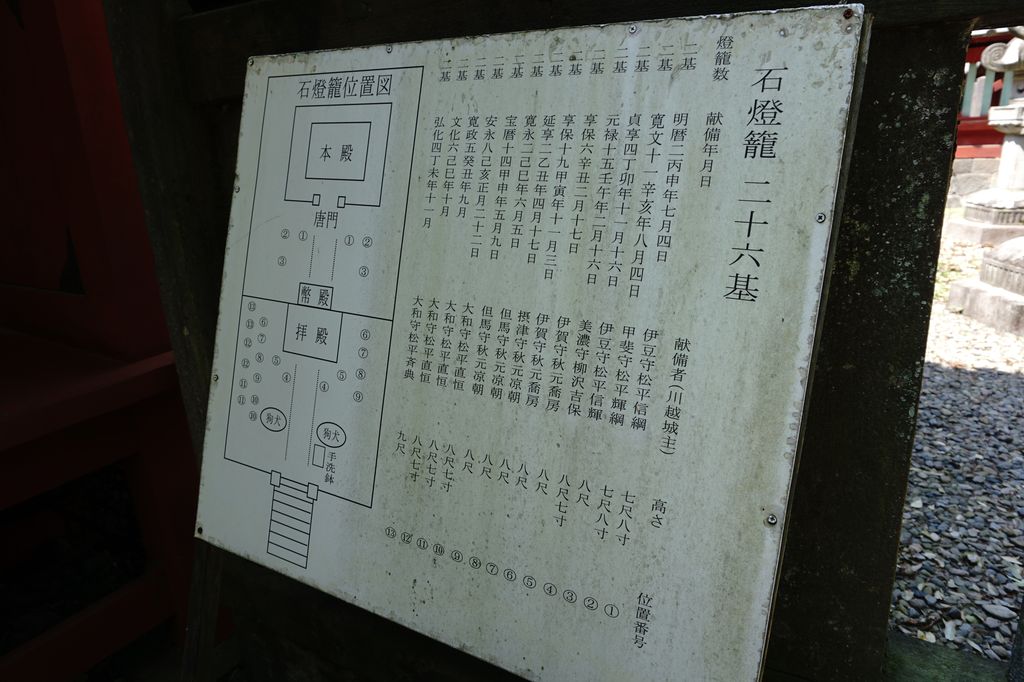 石燈籠 二十六基
燈籠数 献備年月日 献備者(川越城主) 高さ 位置番号
二基 明暦二丙申年七月四日 伊豆守松平信綱 七尺八寸 ①
二基 寛文十一辛亥年八月四日 甲斐守松平輝綱 七尺八寸 ②
二基 貞享四丁卯年十一月十六日 伊豆守松平信輝 八尺 ③
二基 元禄十五壬午年二月十六日 美濃守柳沢吉保 八尺七寸 ④
二基 享保六辛丑二月十七日 伊賀守秋元喬房 八尺 ⑤
二基 享保十九甲寅年十一月三日 伊賀守秋元喬房 八尺 ⑥
二基 延享二乙丑年四月十七日 摂津守秋元凉朝 八尺 ⑦
二基 寛永二己巳年六月五日 但馬守秋元凉朝 八尺 ⑧
二基 宝暦十四甲申年五月九日 但馬守秋元凉朝 八尺 ⑨
二基 安永八己亥正月二十二日 大和守松平直恒 八尺七寸 ⑩
二基 寛政五癸丑年九月 大和守松平直恒 八尺七寸 ⑪
二基 文化六己巳年十月 大和守松平直恒 八尺七寸 ⑫
二基 弘化四丁未年十一月 大和守松平斉典 九尺 ⑬
石燈籠位置図
本殿
唐門
② ① ① ②
③ ③
幣殿
拝殿
⑬ ⑥ ⑥
⑬ ⑦ ⑦
⑫ ⑧ ⑧
⑫ ⑨ ⑤ ④ ④ ⑤ ⑨
⑪ ⑩
⑪ ⑩
狛犬 狛犬
手洗鉢